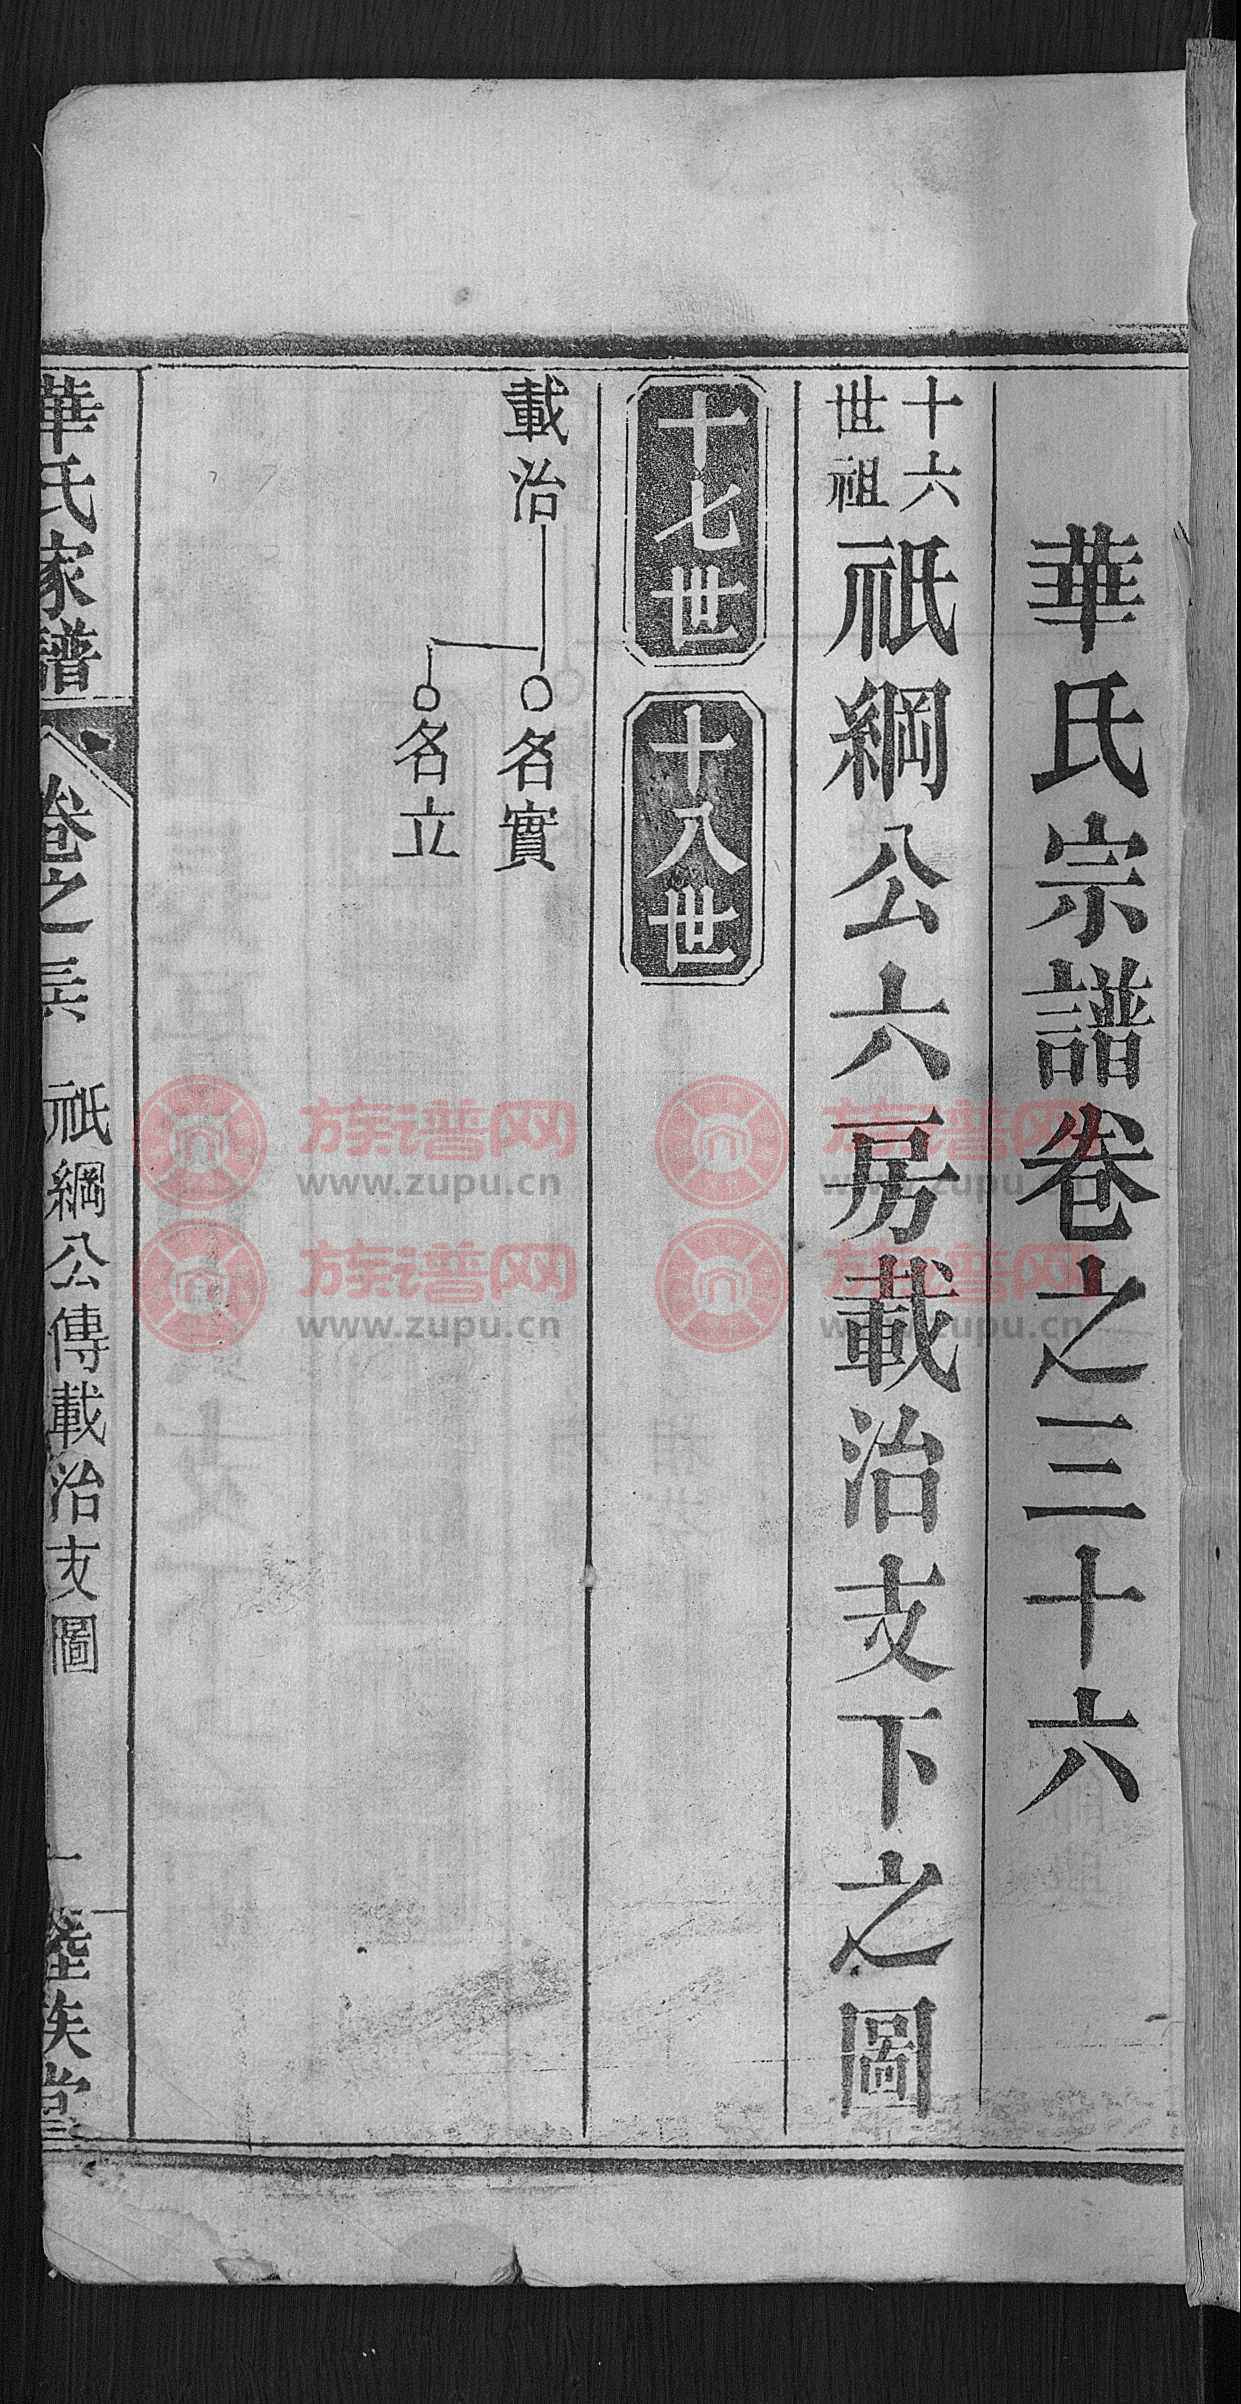 華氏宗譜卷之三十六
十六世祖祇綱公六房載治支下之圖
十七世
十八世
載治
名實
名立
華氏家譜
卷之三六
祇綱公傳載治支圖
一
睦族堂
族谱网
www.zupu.cn
族谱网
www.zupu.cn
族谱网
www.zupu.cn
族谱网
www.zupu.cn